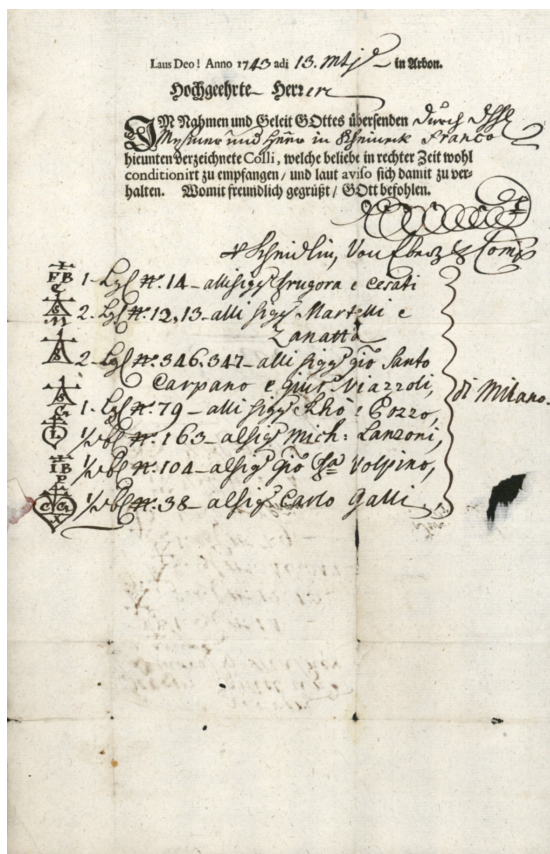 Laus Deo! Anno 1743 adi 13. in Arbon.
Hochgeehrte Herren
IM Nahmen und Geleit GOttes übersenden durch
und in Franco
hieunten verzeichnete Colli, welche beliebe in rechter Zeit wohl
conditionirt zu empfangen / und laut aviso sich damit zu ver-
halten. Womit freundlich gegrüßt / GOtt befohlen.
Von Ebertz & Comp
FB 1 Lgl N°. 14 - alli sigg. Frugora e Cesati
M 2 Lgl N°. 12, 13 - alli sigg. Martelli e
Zanatta
2 Lgl N°. 346, 347 - alli sigg. Gio Santo
Carpano e Viazzoli,
1 Lgl N°. 79 - alli sigg. e Pozzo, di Milano.
L N°. 163 - al sig. Mich: Lanzoni,
IB N°. 104 - al sig. Gio Volpino,
N°. 38 - al sig. Carlo Galli